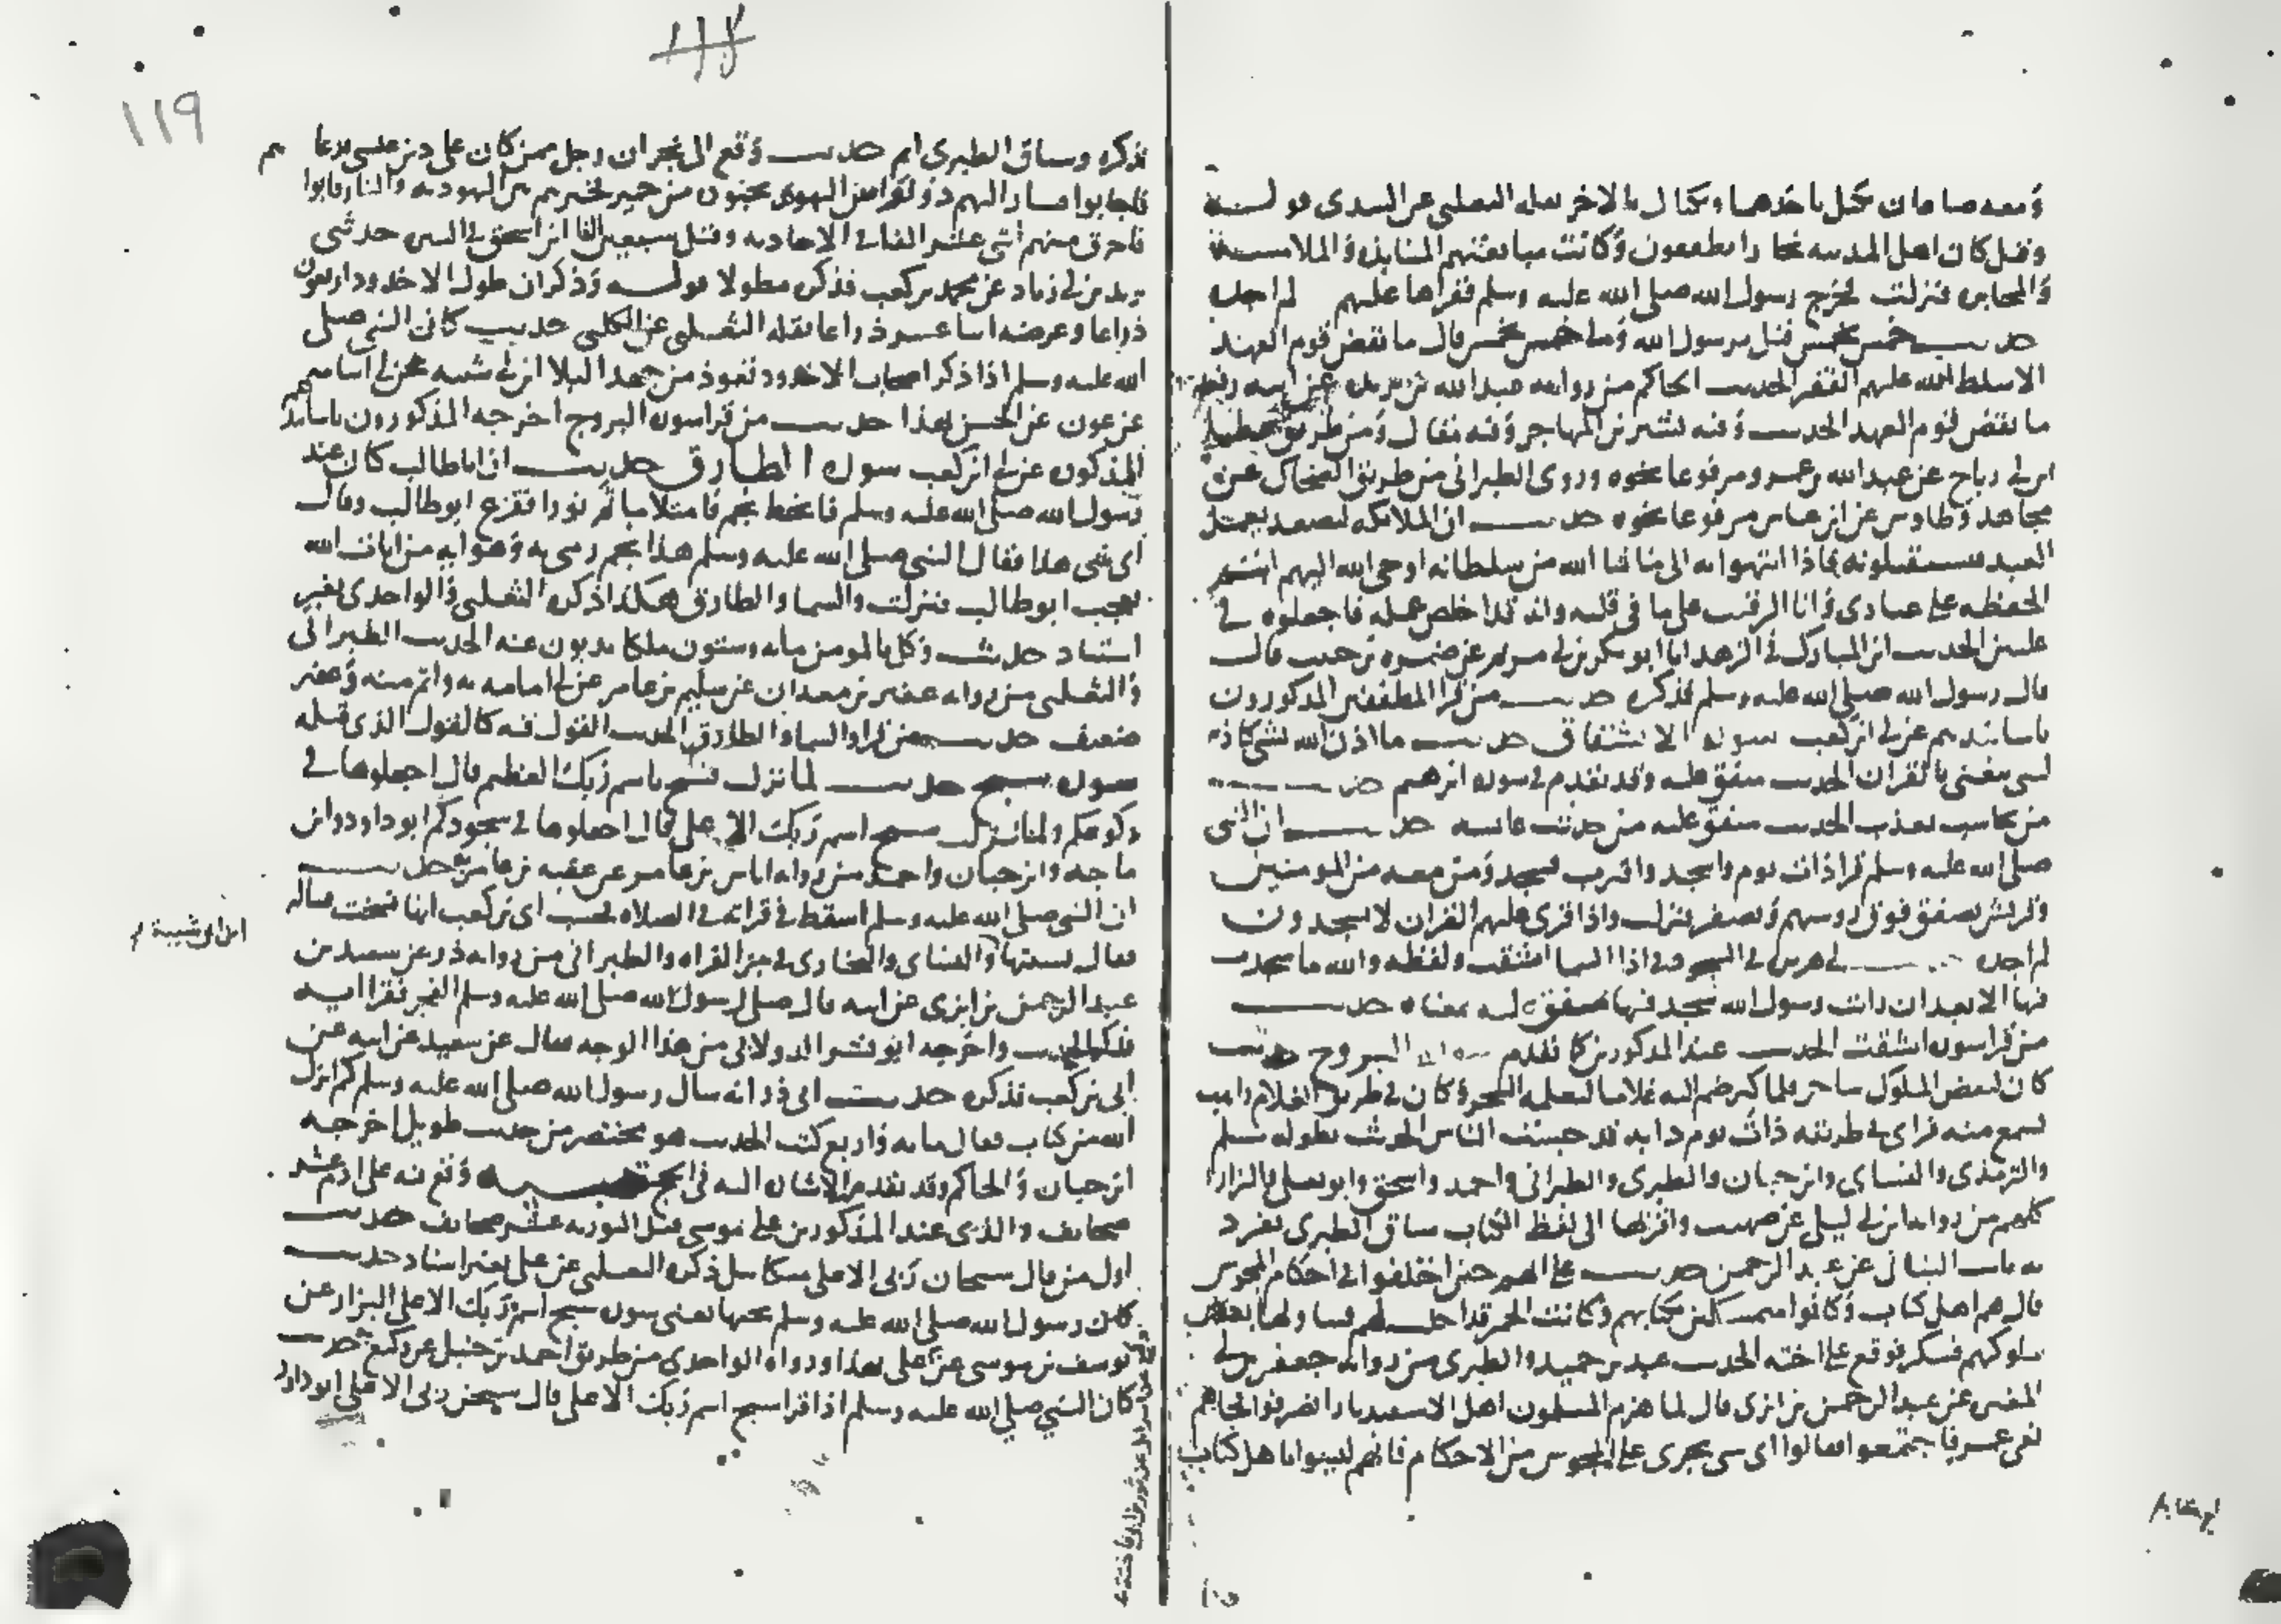 ومعه صاعان يكيل باحدهما ويكتال بالاخر نقله الثعلبي عن السدى قوله
وقيل كان اهل المدينه تجارا يطففون وكانت مبايعتهم المنابذة والملامسة
والمخابره فنزلت فخرج رسول الله صلى الله عليه وسلم فقراها عليهم لم اجده
حديث خمس بخمس قيل يرسول الله وما خمس بخمس قال ما نقض قوم العهد
الا سلط الله عليهم الفقر الحديث الحاكم من روايه عبد الله بن بريده عن ابيه رفعه
ما نقض قوم العهد الحديث وفيه بشير بن المهاجر وفيه مقال ومن طريق عطا
بن ابى رباح عن عبد الله بن عمرو مرفوعا نحوه وروى الطبرانى من طريق الضحاك عن
مجاهد وطاوس عن ابن عباس مرفوعا نحوه حديث ان الملائكه لتصعد بعمل
العبد فيستقبلونه فاذا انتهوا به الى ما شا الله من سلطانه اوحى الله اليهم انتم
الحفظه على عبادى وانا الرقيب على ما فى قلبه وانه قد اخلص عمله فاجعلوه فى
عليين الحديث ابن المبارك فى الزهد انا ابو بكر بن ابى مريم عن ضمره بن حبيب قال
قال رسول الله صلى الله عليه وسلم فذكره حديث من قرا المطففين المذكورون
باسانيدهم عن ابى بن كعب سورة الانشقاق حديث ما اذن الله لشى كاذنه
لنبى يتغنى بالقران الحديث متفق عليه وقد تقدم فى سوره ابرهيم حديث
من يحاسب يعذب الحديث متفق عليه من حديث عايشه حديث ان النبى
صلى الله عليه وسلم قرا ذات يوم واسجد واقترب فسجد ومن معه من المومنين
وقريش تصفق فوق روسهم وتصفر فنزلت واذا قرى عليهم القران لا يسجدون
لم اجده حديث ابى هريره فى السجود فى اذا السما انشقت ولفظه والله ما سجدت
فيها الا بعد ان رايت رسول الله يسجد فيها متفق عليه بمعناه حديث
من قرا سوره انشقت الحديث عند المذكورين كما تقدم سورة البروج حديث
كان لبعض الملوك ساحر فلما كبر ضم اليه غلاما ليعلمه السحر وكان فى طريق الغلام راهب
يسمع منه فراى فى طريقه ذات يوم دابه قد حبست الناس الحديث بطوله مسلم
والترمذى والنساى وابن حبان والطبرى والطبرانى واحمد واسحق وابو يعلى والبزار
كلهم من روايه ابن ابى ليلى عن صهيب واقربها الى لفظ الكتاب سياق الطبرى تفرد
به ثابت البنانى عن عبد الرحمن حديث على انهم حين اختلفوا فى احكام المجوس
قال هم اهل كتاب وكانوا متمسكين بكتابهم وكانت الخمر قد احلت لهم فتناولها بعض
ملوكهم فسكر فوقع على اخته الحديث عبد بن حميد والطبرى من روايه جعفر بن ابى
المغيره عن عبد الرحمن بن ابزى قال لما هزم المسلمون اهل الاسفيذيار انصرفوا فجاهم
نعى عمر فاجتمعوا فقالوا اى شى يجرى على المجوس من الاحكام فانهم ليسوا باهل كتاب
١١٨
١١٩
فذكره وساق الطبرى اتم حديث وقع الى نجران رجل ممن كان على دين عيسى فدعاهم
فاجابوا فسار اليهم ذو نواس اليهودى بجنود من حمير فخيرهم بين اليهوديه والنار فابوا
فاحرق منهم اثنى عشر الفا فى الاخاديد وقيل سبعين الفا ابن اسحق فى السيره حدثنى
يزيد بن ابى زياد عن محمد بن كعب فذكره مطولا قوله وذكر ان طول الاخدود اربعون
ذراعا وعرضه اثنا عشر ذراعا نقله الثعلبى عن الكلبى حديث كان النبى صلى
الله عليه وسلم اذا ذكر اصحاب الاخدود تعوذ من جهد البلا ابن ابى شيبه عن ابى اسامه
عن عوف عن الحسن بهذا حديث من قرا سوره البروج اخرجه المذكورون باسانيدهم
المذكوره عن ابى بن كعب سورة الطارق حديث ان ابا طالب كان عند
رسول الله صلى الله عليه وسلم فانحط نجم فامتلا ما ثم نورا ففزع ابو طالب وقال
اى شى هذا فقال النبى صلى الله عليه وسلم هذا نجم رمى به وهو ايه من ايات الله
فعجب ابو طالب فنزلت والسما والطارق هكذا ذكره الثعلبى والواحدى بغير
اسناد حديث وكل بالمومن مايه وستون ملكا يذبون عنه الحديث الطبرانى
والثعلبى من روايه عفير بن معدان عن سليم بن عامر عن ابى امامه به واتم منه وعفير
ضعيف حديث من قرا والسما والطارق الحديث القول فيه كالقول الذى قبله
سورة سبح حديث لما نزلت فسبح باسم ربك العظيم قال اجعلوها فى
ركوعكم ولما نزلت سبح اسم ربك الاعلى قال اجعلوها فى سجودكم ابو داود وابن
ماجه وابن حبان واحمد من روايه اياس بن عامر عن عقبه بن عامر به حديث
ان النبى صلى الله عليه وسلم اسقط فى قراته فى الصلاه فحسب ابى بن كعب انها نسخت فساله
فقال نسيتها والنساى والبخارى فى جزء القراه والطبرانى من روايه ذر عن سعيد بن
ابن ابى شيبة
عبد الرحمن بن ابزى عن ابيه قال صلى رسول الله صلى الله عليه وسلم الفجر فقرا ايه
فذكر الحديث واخرجه ابو بشر الدولابى من هذا الوجه فقال عن سعيد عن ابيه عن
ابى بن كعب فذكره حديث ابى ذر انه سال رسول الله صلى الله عليه وسلم كم انزل
الله من كتاب فقال مايه واربع كتب الحديث هو مختصر من حديث طويل اخرجه
ابن حبان والحاكم وقد تقدم الاشاره اليه فى الحج تنبيه وقع فيه على ادم عشر
صحايف والذى عند المذكورين على موسى قبل التوريه عشر صحايف حديث
اول من قال سبحان ربى الاعلى ميكاييل ذكره الثعلبى عن على بغير اسناد حديث
كان رسول الله صلى الله عليه وسلم يحبها يعنى سوره سبح اسم ربك الاعلى البزار عن
يوسف بن موسى عن على بهذا ورواه الواحدى من طريق احمد بن حنبل عن وكيع حديث
كان النبي صلي الله عليه وسلم اذا قرا سبح اسم ربك الاعلى قال سبحن ربى الاعلى ابو داود